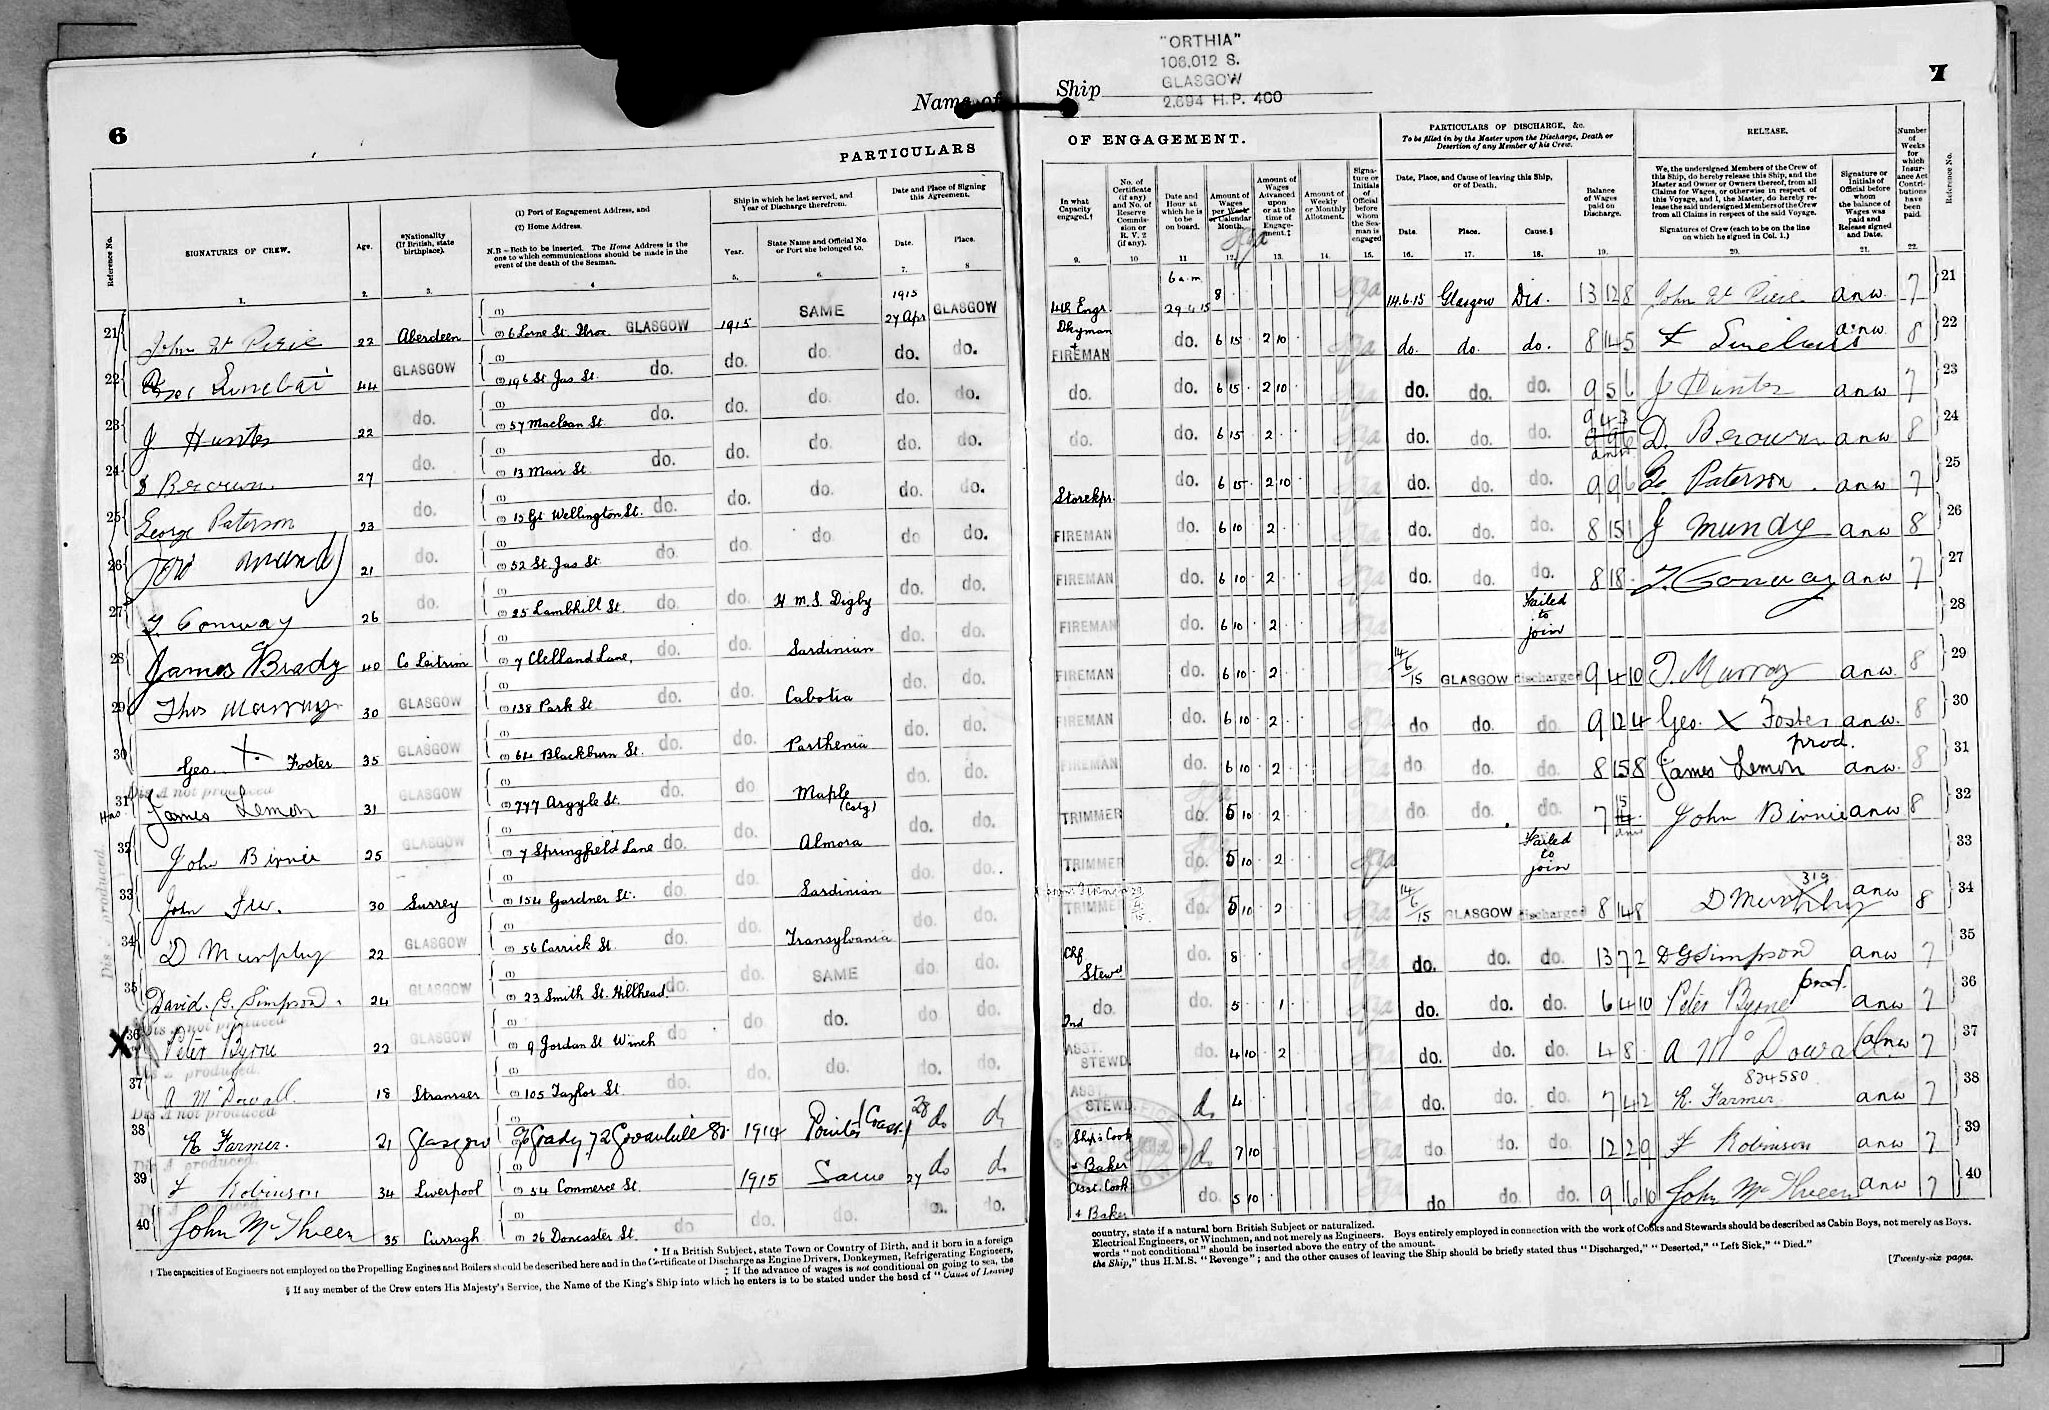 "ORTHIA"
106.012 S.
GLASGOW
2,694 H.P. 400
6
Name of
Ship
7
PARTICULARS
OF ENGAGEMENT.
PARTICULARS OF DISCHARGE, &c.
To be filled in by the Master upon the Discharge, Death or
Desertion of any Member of his Crew.
RELEASE.
Reference No.
SIGNATURES OF CREW.
Age.
*Nationality
(If British, state
birthplace).
(1) Port of Engagement Address, and
(2) Home Address.
N.B - Both to be inserted. The Home Address is the
one to which communications should be made in the
event of the death of the Seaman.
Ship in which he last served, and
Year of Discharge therefrom.
Year.
State Name and Official No.
or Port she belonged to.
Date and Place of Signing
this Agreement.
Date.
Place.
In what
Capacity
engaged.†
No. of
Certificate
(if any)
and No. of
Reserve
Commis-
sion or
R. V. 2
(if any).
Date and
Hour at
which he is
to be
on board.
Amount of
Wages
per Week
or Calendar
Month.
Amount of
Wages
Advanced
upon
or at the
time of
Engage-
ment.‡
Amount of
Weekly
or Monthly
Allotment.
Signa-
ture or
Initials
of
Official
before
whom
the Sea-
man is
engaged
Date, Place, and Cause of leaving this Ship,
or of Death.
Date.
Place.
Cause.§
Balance
of Wages
paid on
Discharge.
We, the undersigned Members of the Crew of
this Ship, do hereby release this Ship, and the
Master and Owner or Owners thereof, from all
Claims for Wages, or otherwise in respect of
this Voyage, and I, the Master, do hereby re-
lease the said undersigned Members of the Crew
from all Claims in respect of the said Voyage.
Signatures of Crew (each to be on the line
on which he signed in Col. 1.)
Signature or
Initials of
Official before
whom
the balance of
Wages was
paid and
Release signed
and Date.
Number
of
Weeks
for
which
Insur-
ance Act
Contri-
butions
have
been
paid.
Reference No.
1. 2. 3. 4 5. 6. 7. 8
9. 10 11 12. 13. 14. 15. 16. 17. 18. 19. 20. 21. 22.
21 John Wt Pirie 22 Aberdeen (1) (2) 6 Lorne St. Ibrox GLASGOW 1915 SAME 1915 27 Apr GLASGOW
4th Engr. 6 a.m 29 4 15 8 14.6.15 Glasgow Dis. 13 12 8 John Wt Pirie anw. 7 21
22 44 GLASGOW (1) (2) 196 St. Jas St. do. do. do. do. do.
Dkyman + FIREMAN do. 6 15 2 10 do. do. do. 8 14 5 anw 8 22
23 J Hunter 22 do. (1) (2) 57 Maclean St. do. do. do. do. do.
do. do. 6 15 2 10 do. do. do. 9 5 6 J Hunter anw 7 23
24 D Brown. 27 do. (1) (2) 13 Mair St. do. do. do. do. do.
do. do. 6 15 2 do. do. do. 9 4 3 D. Brown anw 8 24
25 George Paterson 23 do. (1) (2) 15 Gt Wellington St. do. do. do. do. do.
Storekpr. do. 6 15 2 10 do. do. do. 9 9 6 Ge. Paterson anw 7 25
26 21 do. (1) (2) 52 St. Jas St. do. do. do. do do.
FIREMAN do. 6 10 2 do. do. do. 8 15 1 J Mundy anw 8 26
27 T. Conway 26 do. (1) (2) 25 Lambhill St. do. do. H M. S. Digby do. do.
FIREMAN do. 6 10 2 do. do. do. 8 18 T. Conway anw 7 27
28 James Brady 40 Co Leitrim (1) (2) 7 Clelland Lane, do. do. Sardinian do. do.
FIREMAN do. 6 10 2 Failed to join 28
29 Thos Murray 30 GLASGOW (1) (2) 138 Park St do. do. Cabotia do. do.
FIREMAN do. 6 10 2 14/6/15 GLASGOW discharged 9 4 10 T. Murray anw. 8 29
30 Geo. X Foster 35 GLASGOW (1) (2) 64 Blackburn St. do. do. Parthenia do. do.
FIREMAN do. 6 10 2 do do. do 9 12 4 Geo. X Foster anw. 8 30
Dis A not produced
31 James Lemon 31 GLASGOW (1) (2) 777 Argyle St. do. do Maple (Cstg) do. do.
FIREMAN do. 6 10 2 do do. do 8 15 8 prod. James Lemon anw. 8 31
32 John Birnie 25 GLASGOW (1) (2) 7 Springfield Lane do. do. Almora do. do.
TRIMMER do. 5 10 2 do. do. do. 7 15 John Birnie anw 8 32
33 John 30 Surrey (1) (2) 154 Gardner St. do. do. Sardinian do. do.
TRIMMER do. 5 10 2 Failed to join 33
34 D Murphy 22 GLASGOW (1) (2) 56 Carrick St do. do. Transylvania do do.
TRIMMER do. 5 10 2 14/6/15 GLASGOW discharged 8 14 8 319 D Murphy anw 8 34
35 David. G. Simpson. 24 GLASGOW (1) (2) 23 Smith St. Hillhead. do. do. SAME do. do.
Chf Stewd do. 8 do. do. do. 13 7 2 D G Simpson anw 7 35
Dis A not produced
X 36 Peter Byrne 22 GLASGOW (1) (2) 9 Jordan St Winch do do do. do do.
2nd do. do. 5 1 do. do. do. 6 4 10 Peter Byrne prod. anw 7 36
Dis A produced.
37 A McDowall 18 Stranraer (1) (2) 105 Taylor St do. do. do. do. do.
ASST. STEWD. do. 4 10 2 do. do. do. 4 8 A McDowall anw 7 37
Dis A not produced
38 R Farmer. 21 Glasgow (1) 72 1914 28 do do
ASST STEWD. do 4 do. do. do. 7 4 2 824580 R. Farmer anw 7 38
Dis A produced.
39 F Robinson 34 Liverpool (1) (2) 54 Commerce St. 1915 Same 27 do do
Ship's Cook + Baker do 7 10 do do. do. 12 2 9 F Robinson anw 7 39
40 35 Curragh (1) (2) 26 Doncaster St. do do. do. do. do.
Asst. Cook + Baker do. 5 10 do do. do. 9 6 10 anw 7 40
* If a British Subject, state Town or Country of Birth, and it born in a foreign
country, state if a natural born British Subject or naturalized.
† The capacities of Engineers not employed on the Propelling Engines and Boilers should be described here and in the Certificate of Discharge as Engine Drivers, Donkeymen, Refrigerating Engineers,
Electrical Engineers, or Winchmen, and not merely as Engineers. Boys entirely employed in connection with the work of Cooks and Stewards should be described as Cabin Boys, not merely as Boys.
‡ If the advance of wages is not conditional on going to sea, the
words "not conditional" should be inserted above the entry of the amount.
§ If any member of the Crew enters His Majesty's Service, the Name of the King's Ship into which he enters is to be stated under the head of "Cause of Leaving
the Ship," thus H.M.S. "Revenge"; and the other causes of leaving the Ship should be briefly stated thus "Discharged," "Deserted," "Left Sick," "Died."
[Twenty-six pages.